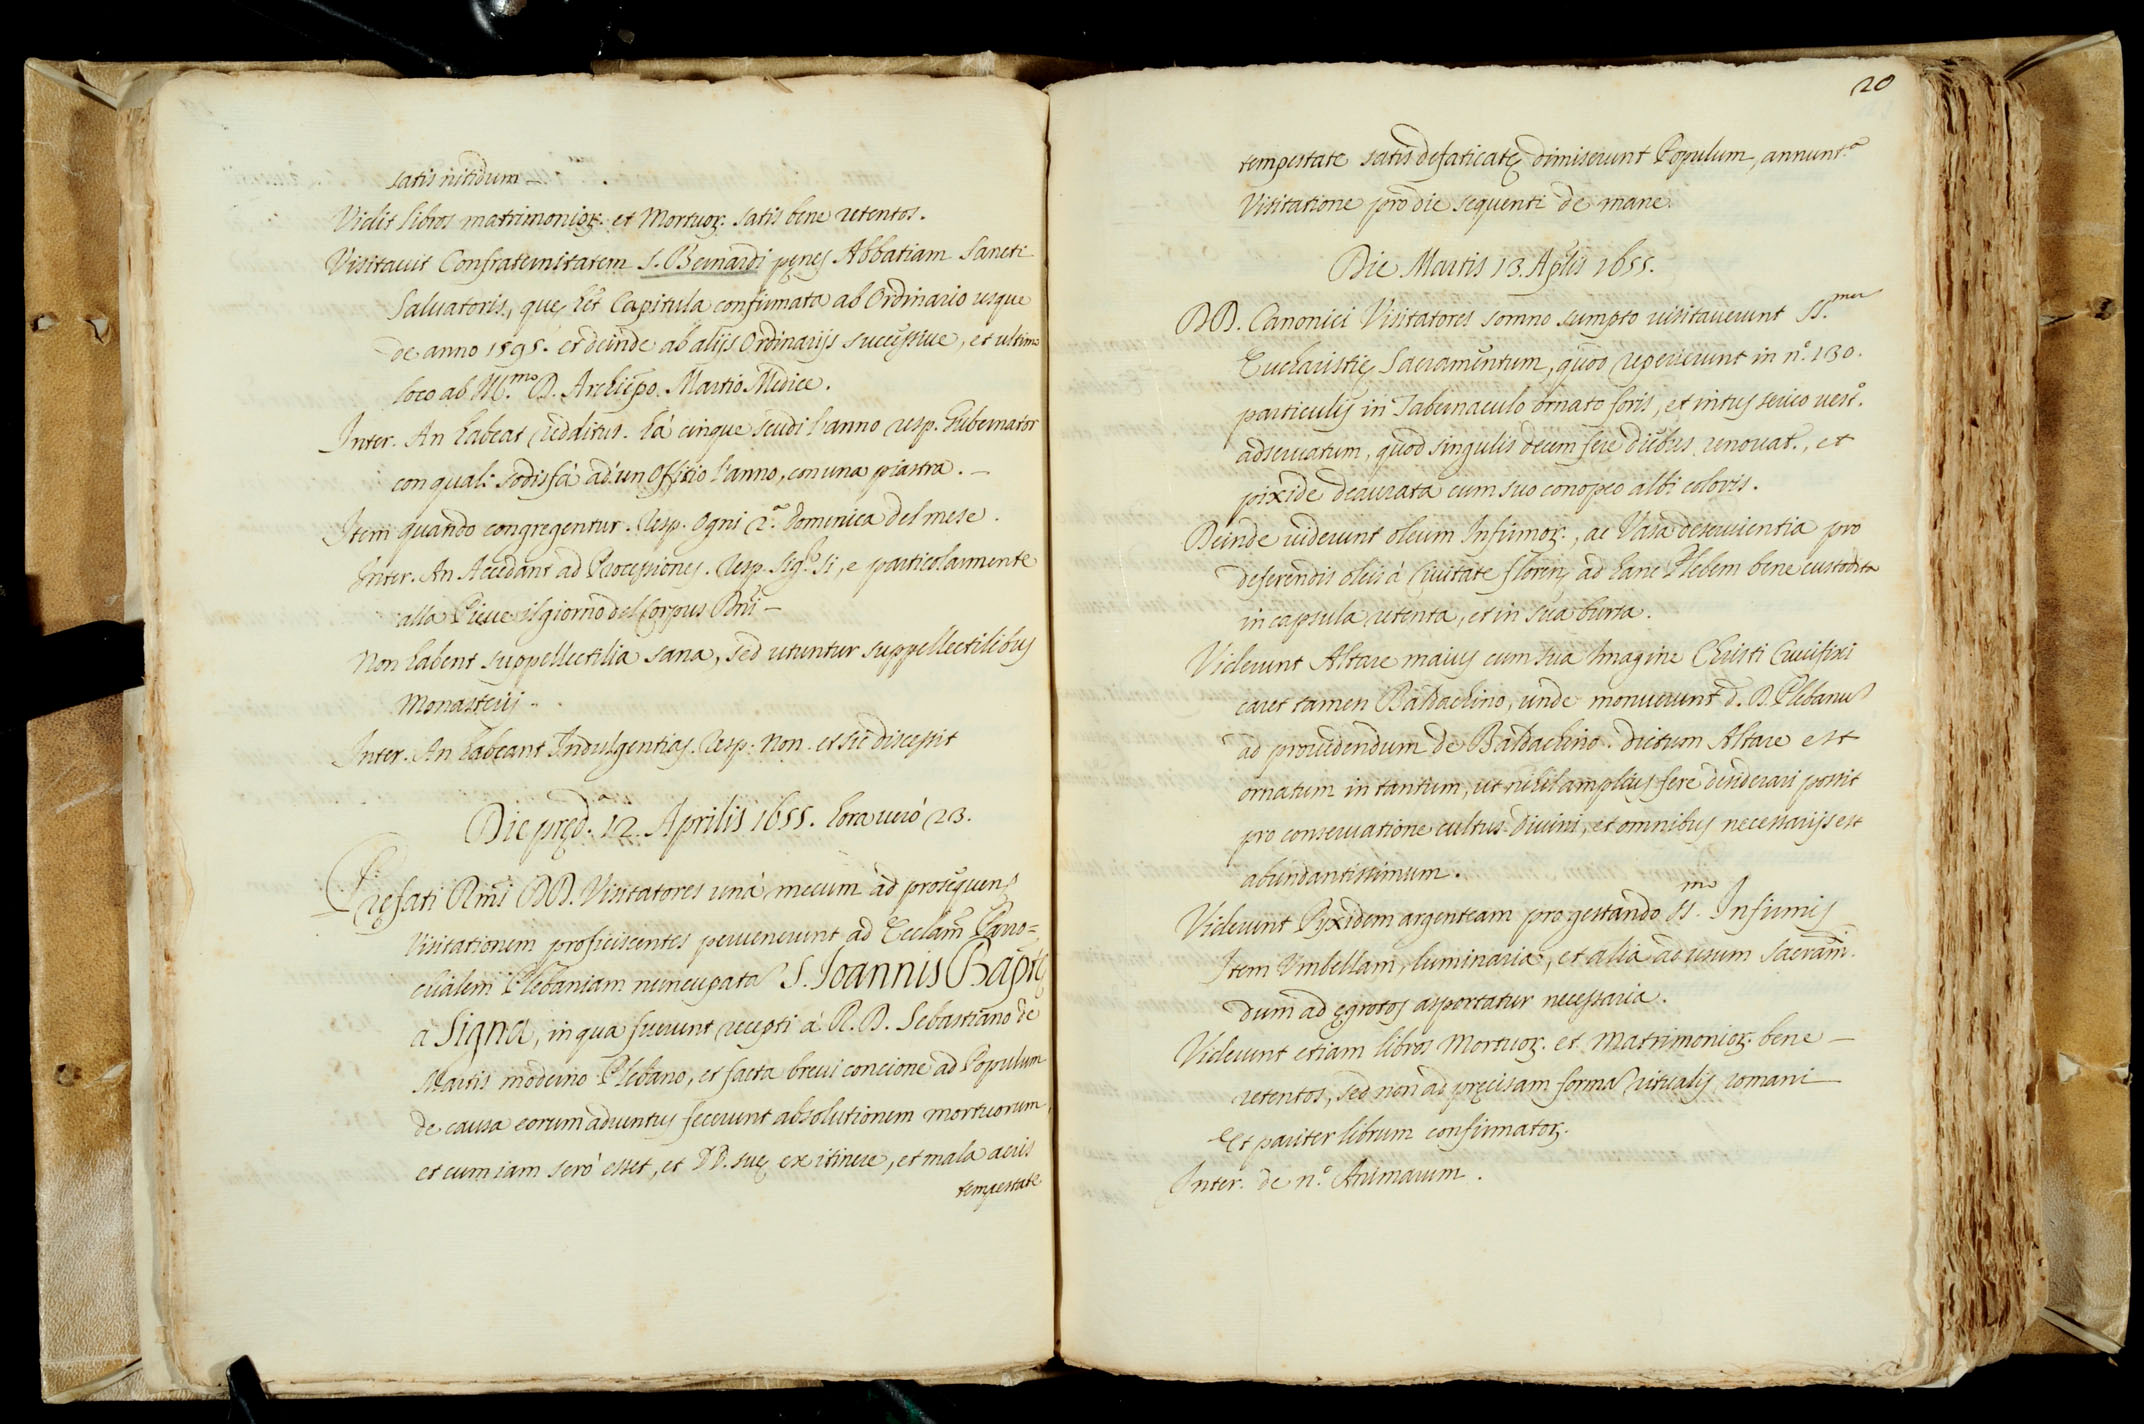 satis nitidum —
Vidit libros matrimonior. et Mortuor. satis bene retentos.
Visitauit Confraternitatem S. Bernardi penes Abbatiam Sancti
Saluatoris, que h̃et Capitula confirmata ab Ordinario usque
de anno 1595. et deinde ab alijs Ordinarijs successiue, et ultimo
loco ab Ill.mo D. Archiepõ. Martio Medice.
Inter. An habeat redditus. hà cinque scudi l'anno resp. Gubernator
con quali sodisfà ad un Offitio l'anno, con una piastra. —
Item quando congregentur. Resp. Ogni 2.a Domenica del mese.
Inter. An Accedant ad Processiones. Resp. Sig.re si, e particolarmente
alla Pieue il giorno del Corpus Dñi —
Non habent suppellectilia sana, sed utuntur suppellectilibus
Monasterij.
Inter. An habeant Indulgentias. Resp. Non. et sic discessit
Die pręd.a 12 Aprilis 1655. hora uerò 23.
Pręfati Rmi DD. Visitatores unà mecum ad prosequen̄
visitationem proficiscentes peruenerunt ad Ecclam̃ Paro=
chialem Plebaniam nuncupatā S. Joannis Baptę
a Signa, in qua fuerunt recepti à R. D. Sebastiano de
Martis moderno Plebano, et facta breui concione ad Populum
de causa eorum aduentus fecerunt absolutionem mortuorum,
et cum iam serò esset, et DD. suę ex itinere, et mala aeris
tempestate
20
tempestate satis defaticatę dimiserunt Populum, annunt.a
Visitatione pro die sequenti de mane.
Die Martis 13 Aplis 1655.
DD. Canonici Visitatores somno sumpto visitauerunt SS.mum
Eucharistię Sacramentum, quod repererunt in n.o 130.
particulis in Tabernaculo ornato foris, et intus serico vest.o
adseruatum, quod singulis decem fere diebus renouat., et
pixide deaurata cum suo conopeo albi coloris.
Deinde uiderunt oleum Infirmor., ac Vasa deseruientia pro
deferendis oleis à Ciuitate Florenę ad hanc Plebem bene custodita
in capsula retenta, et in sua bursa.
Viderunt Altare maius cum sua Imagine Christi Crucifixi
caret tamen Baldachino, unde monuerunt d. D. Plebanū
ad prouidendum de Baldachino. dictum Altare est
ornatum in tantum, ut nihil amplius fere desiderari possit
pro conseruatione cultus Diuini, et omnibus necessarijs est
abundantissimum.
Viderunt Pyxidem argenteam pro gestando SS.mo Infirmis
Item Vmbellam, luminaria, et alia ad usum Sacram̃.
dum ad ęgrotos asportatur necessaria.
Viderunt etiam libros Mortuor. et Matrimonior. bene —
retentos, sed non ad pręcisam formā ritualis romani
Et pariter librum confirmator.
Inter. de n.o Animarum.